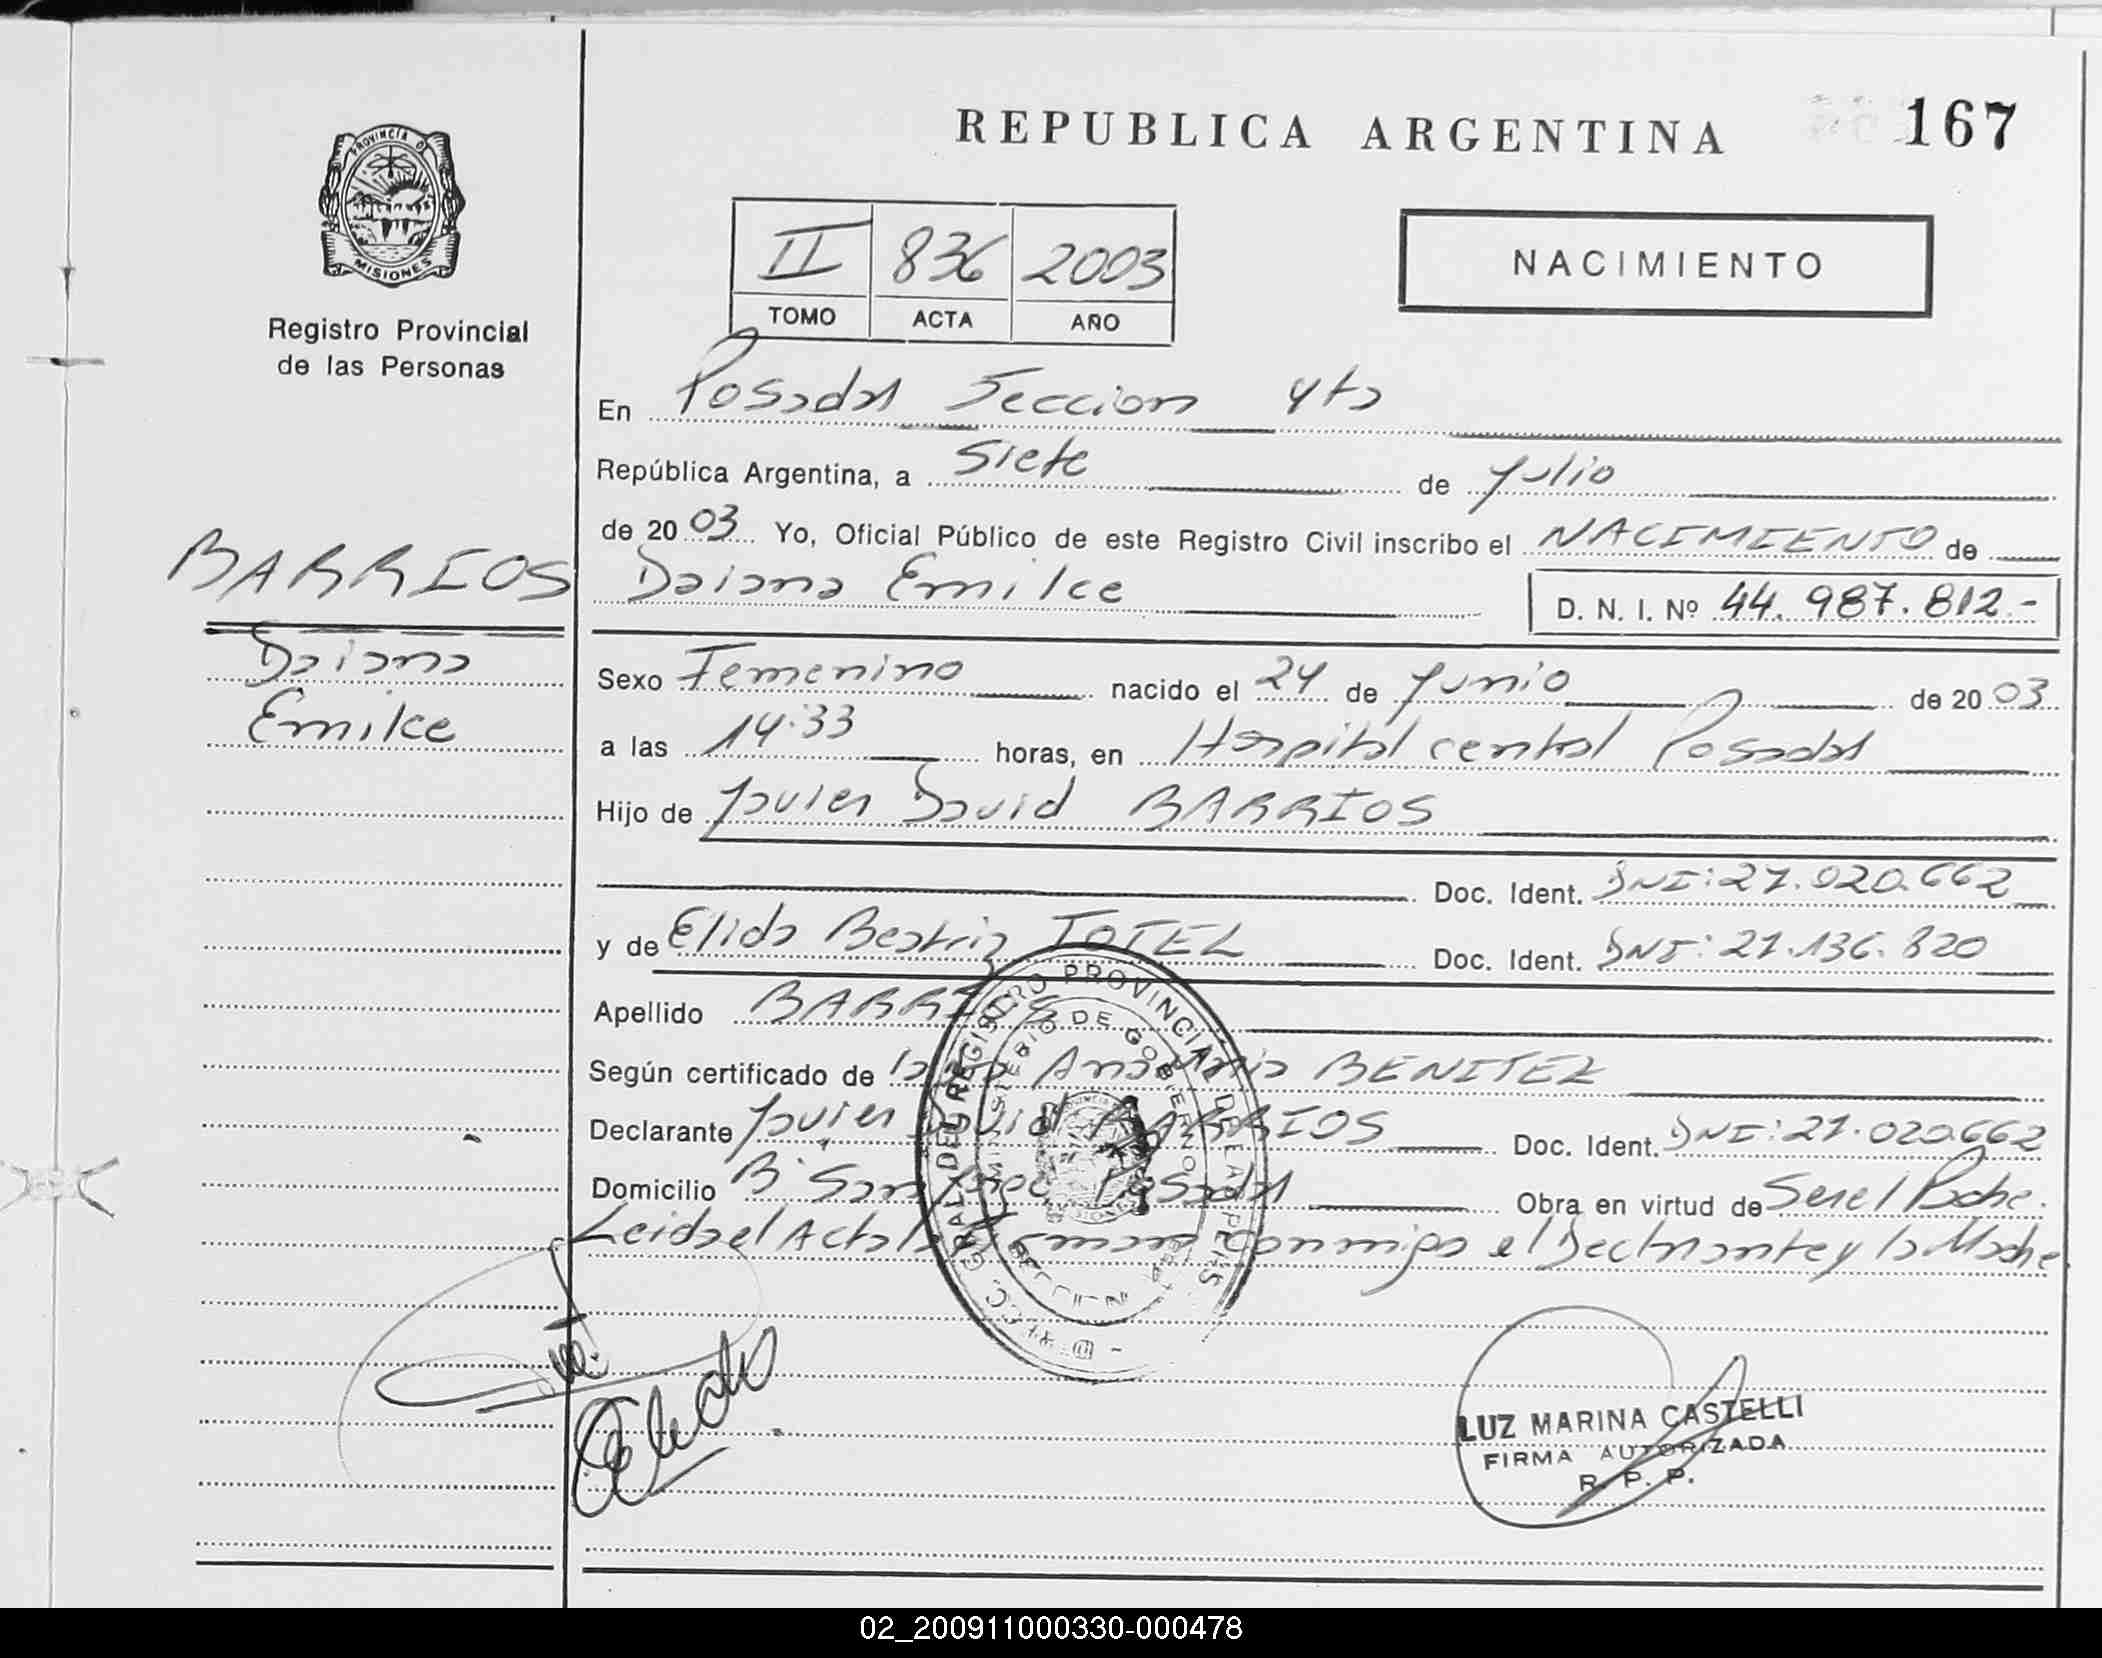 REPUBLICA ARGENTINA
167
PROVINCIA D
MISIONES
Registro Provincial
de las Personas
II 836 2003
TOMO ACTA AÑO
NACIMIENTO
En Posadas Seccion 4ta
República Argentina, a Siete de Julio
de 2003 Yo, Oficial Público de este Registro Civil inscribo el NACIMIENTO de
Daiana Emilce
D. N. I. Nº 44.987.812.-
BARRIOS
Daiana
Emilce
Sexo Femenino nacido el 24 de Junio de 2003
a las 14:33 horas, en Hospital central Posadas
Hijo de Javier David BARRIOS
Doc. Ident. DNI: 27.020.662
y de Elida Beatriz TOTEL Doc. Ident. DNI: 27.136.820
Apellido BARRIOS
Según certificado de BENITEZ
Declarante Javier David BARRIOS Doc. Ident. DNI: 27.020.662
Domicilio Bº San Posadas Obra en virtud de Ser el Padre.
Leida el Acta la Firman conmigo el Declarante y la Madre
GRAL DEL REGISTRO PROVINCIAL DE LAS PERS
MINISTERIO DE GOBIERNO
LUZ MARINA CASTELLI
FIRMA AUTORIZADA
R. P. P.
02_200911000330-000478